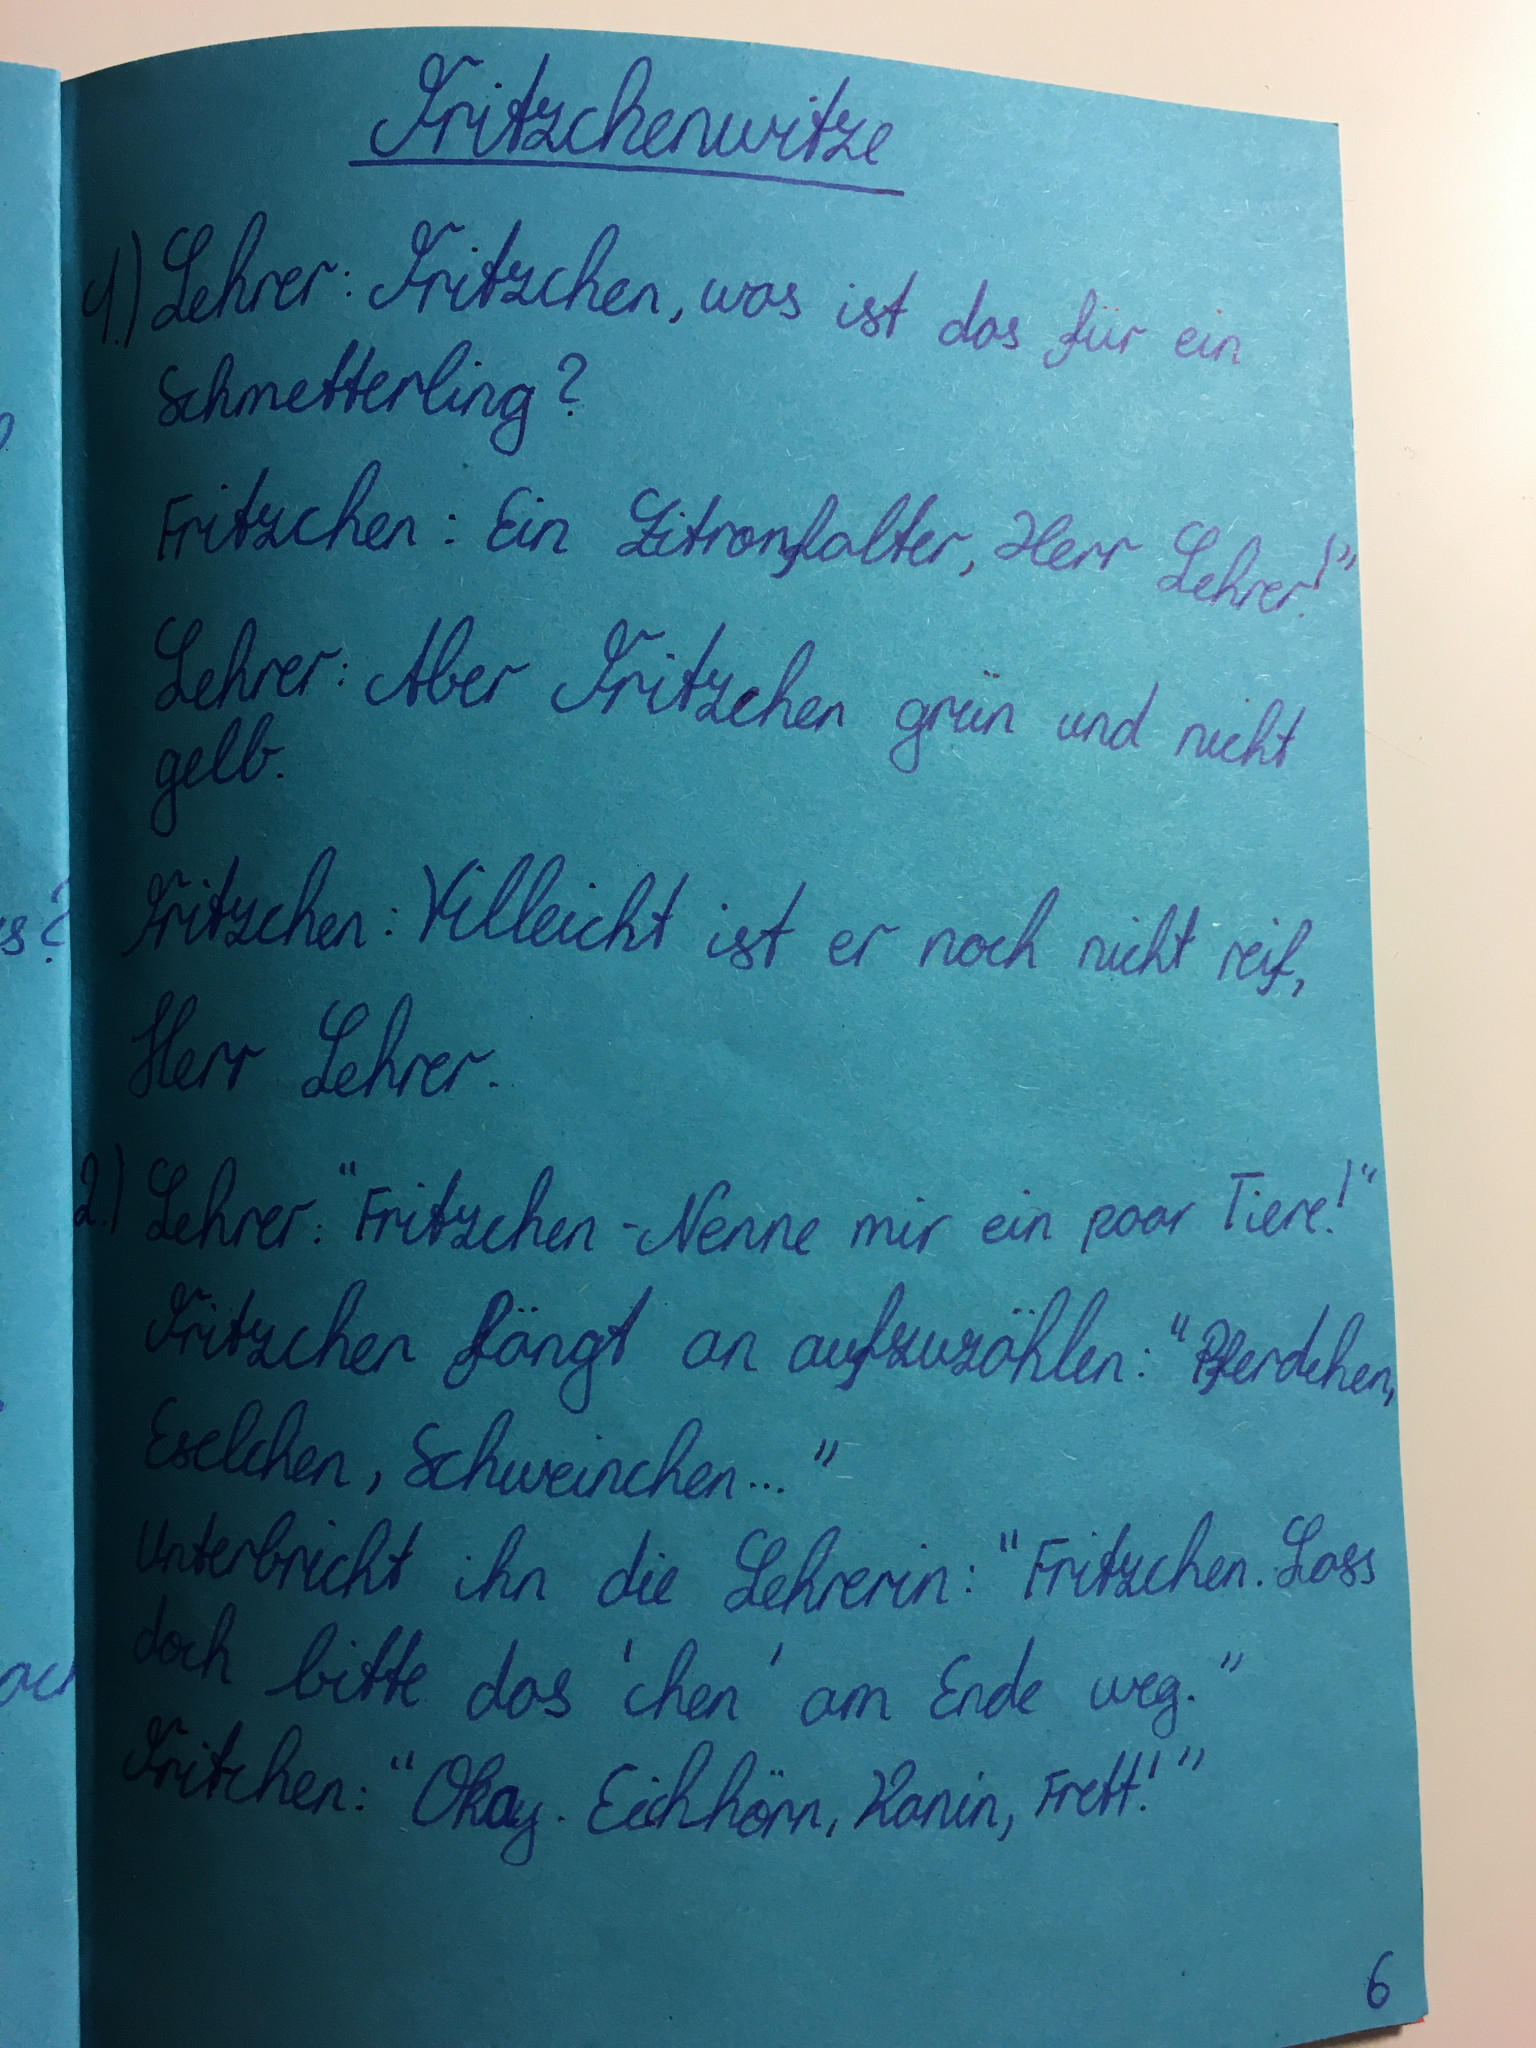 Fritzchenwitze
1.) Lehrer: Fritzchen, was ist das für ein
Schmetterling?
Fritzchen: Ein Zitronfalter, Herr Lehrer!"
Lehrer: Aber Fritzchen grün und nicht
gelb.
Fritzchen: Villeicht ist er noch nicht reif,
Herr Lehrer.
2.) Lehrer: "Fritzchen - Nenne mir ein paar Tiere!"
Fritzchen fängt an aufzuzählen: "Pferdchen,
Eselchen, Schweinchen..."
Unterbricht ihn die Lehrerin: "Fritzchen. Lass
doch bitte das 'chen' am Ende weg."
Fritchen: "Okay. Eichhörn, Kanin, Frett!"
6